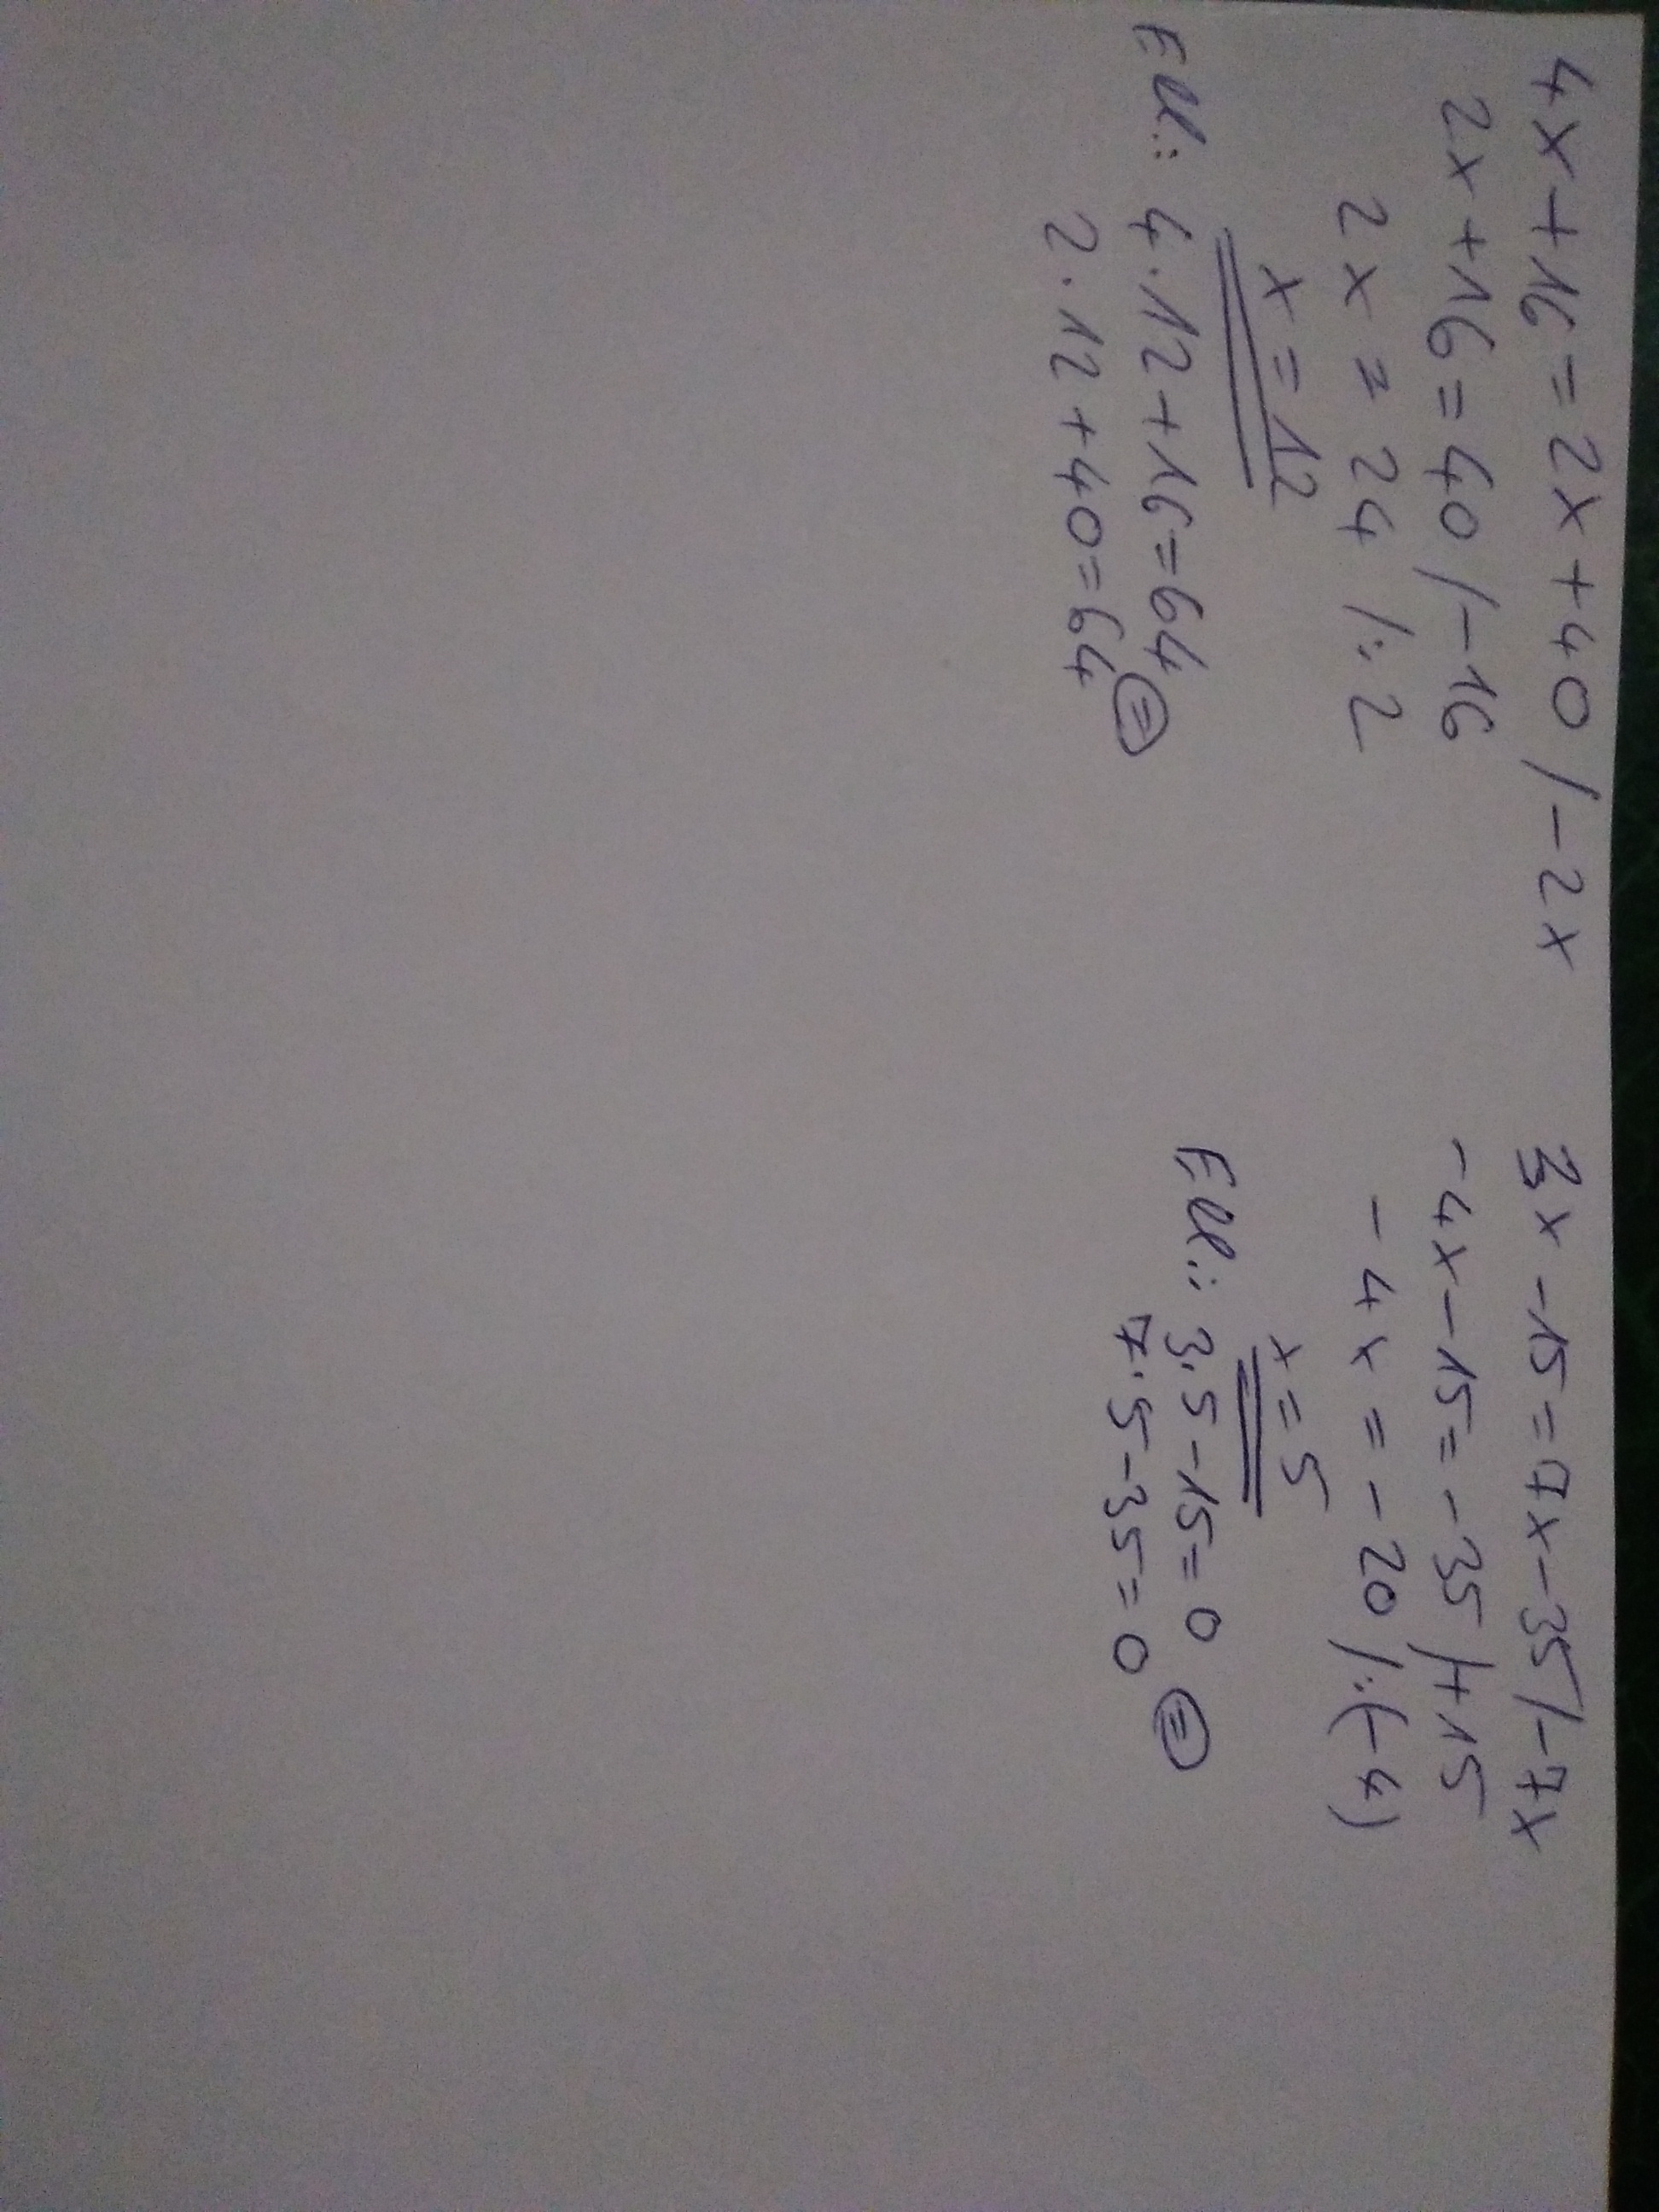 4x+16=2x+40 /-2x
2x+16=40 /-16
2x=24 /:2
x=12
Ell.: 4·12+16=64
2·12+40=64 =
3x-15=7x-35 /-7x
-4x-15=-35 /+15
-4x=-20 /:(-4)
x=5
Ell.: 3·5-15=0
7·5-35=0 =